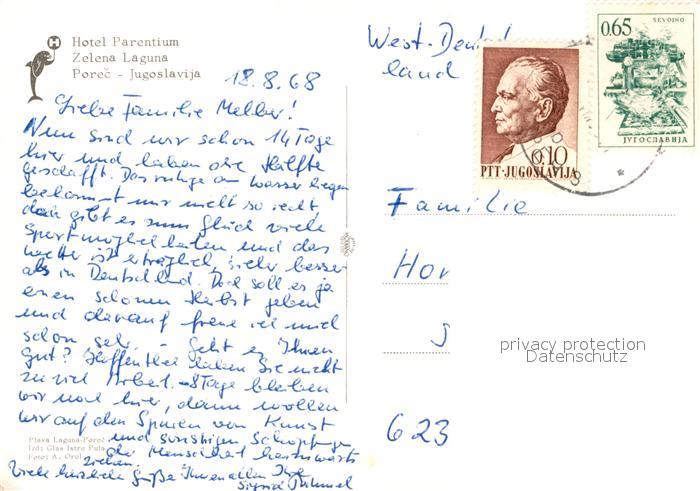 Hotel Parentium
Zelena Laguna
Poreč - Jugoslavija
18.8.68
Liebe Familie Melber!
Nun sind wir schon 14 Tage
hier und haben die Hälfte
geschafft. Das ruhige am Wasser liegen
bekommt mir nicht so recht
doch gibt es zum Glück viele
Sportmöglichkeiten und das
Wetter ist erträglich, sicher besser
als in Deutschland. Doch soll es ja
einen schönen Herbst geben
und darauf freue ich mich
schon sehr. - Geht es Ihnen
gut? Hoffentlich haben Sie nicht
zu viel Arbeit. 8 Tage bleiben
wir noch hier, dann wollen
wir auf den Spuren von Kunst
und sonstigen Schöpfungen
der Menschheit heimwärts
ziehen.
Viele herzliche Grüße Ihnen allen Ihre
Sigrid
Plava Laguna-Poreč
Izd: Glas Istre Pula
Foto: A. Orel
West-Deutsch
land
0.10
PTT-JUGOSLAVIJA
0.65
SEVOJNO
ЈУГОСЛАВИЈА
Familie
Hor
623
privacy protection
Datenschutz